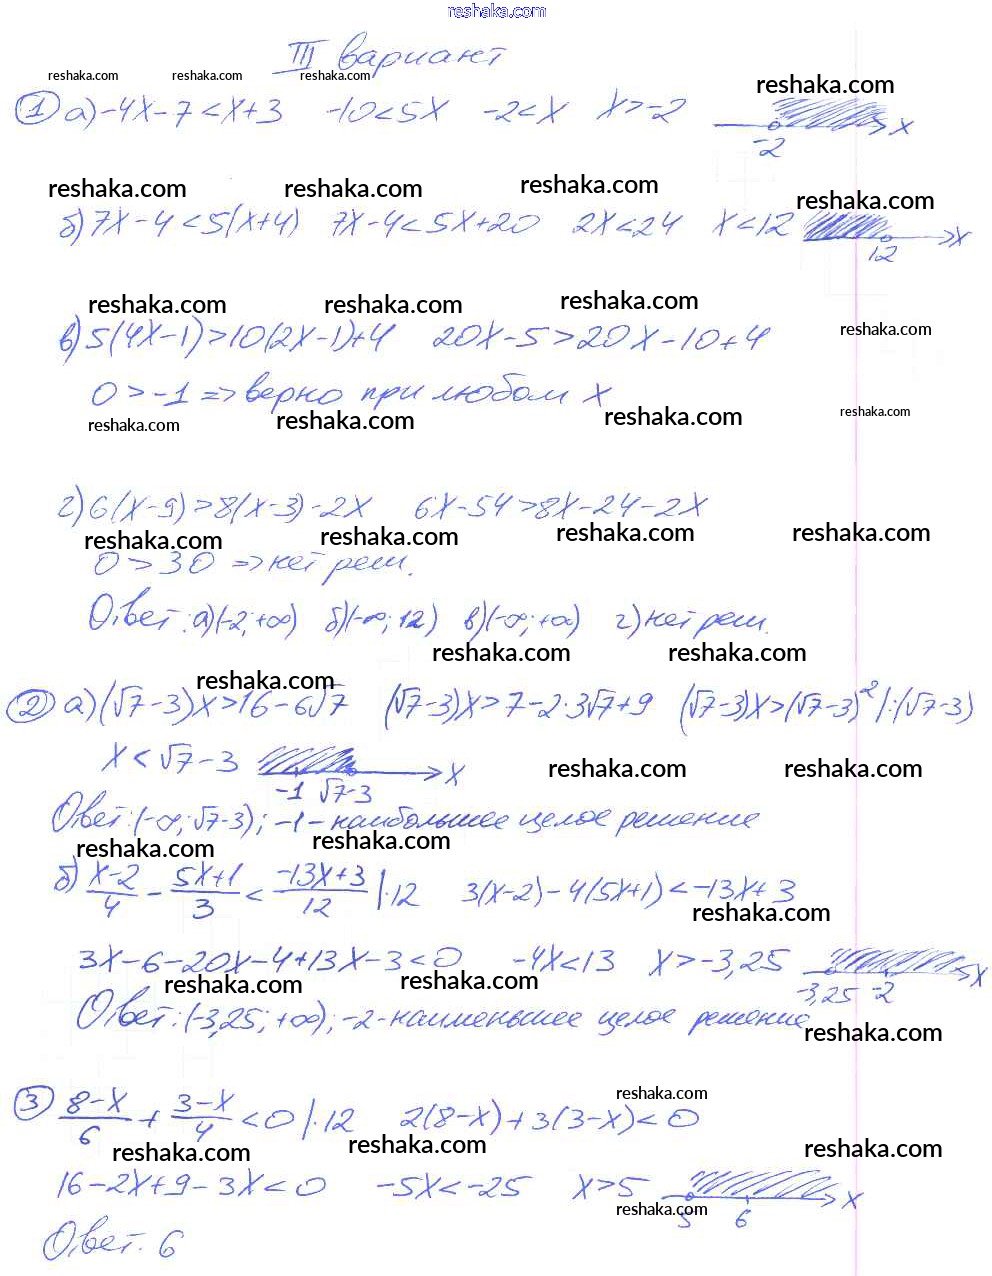 reshaka.com
III вариант
reshaka.com reshaka.com reshaka.com reshaka.com
① а) -4x-7<x+3 -10<5x -2<x x>-2 x
-2
reshaka.com reshaka.com reshaka.com reshaka.com
б) 7x-4<5(x+4) 7x-4<5x+20 2x<24 x<12 x
12
reshaka.com reshaka.com reshaka.com reshaka.com
в) 5(4x-1)>10(2x-1)+4 20x-5>20x-10+4
0>-1 => верно при любом x
reshaka.com reshaka.com reshaka.com reshaka.com
г) 6(x-9)>8(x-3)-2x 6x-54>8x-24-2x
reshaka.com reshaka.com reshaka.com reshaka.com
0>30 => нет реш.
Ответ: а)(-2;+∞) б)(-∞;12) в)(-∞;+∞) г) нет реш.
reshaka.com reshaka.com reshaka.com
② а) (√7-3)x>16-6√7 (√7-3)x>7-2·3√7+9 (√7-3)x>(√7-3)² |:(√7-3)
x<√7-3 x
-1 √7-3
reshaka.com reshaka.com
Ответ: (-∞;√7-3); -1 - наибольшее целое решение
reshaka.com reshaka.com
б) (x-2)/4 - (5x+1)/3 < (-13x+3)/12 |·12 3(x-2)-4(5x+1)<-13x+3
reshaka.com
3x-6-20x-4+13x-3<0 -4x<13 x>-3,25 x
-3,25 -2
reshaka.com reshaka.com
Ответ: (-3,25;+∞); -2 - наименьшее целое решение
reshaka.com
③ (8-x)/6 + (3-x)/4 <0 |·12 2(8-x)+3(3-x)<0
reshaka.com
reshaka.com reshaka.com reshaka.com
16-2x+9-3x<0 -5x<-25 x>5 x
5 6
reshaka.com
Ответ: 6